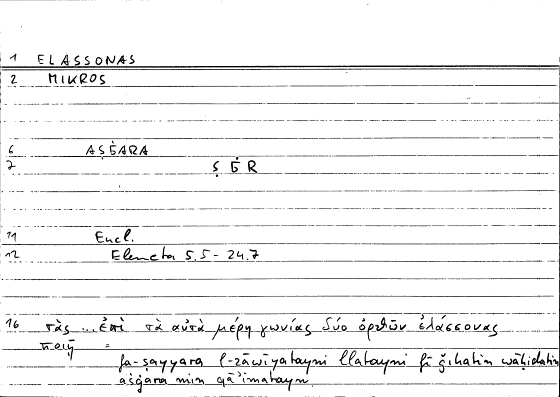 1 ELASSONAS
2 MIKROS
6 AṢĠARA
7 Ṣ Ġ R
11 Eucl.
12 Elementa 5.5 - 24.7
16 τὰς ... ἐπὶ τὰ αὐτὰ μέρη γωνίας δύο ὀρθῶν ἐλάσσονας
ποιῇ =
fa-ṣayyara l-zāwiyatayni llatayni fī ǧihatin wāḥidatin
aṣġara min qāʾimatayn